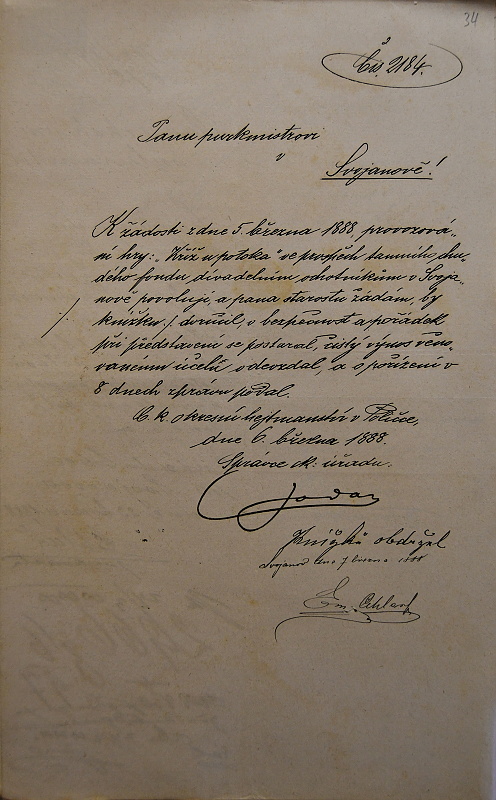 34
Čís. 2184.
Panu purkmistrovi
v
Svojanově!
K žádosti z dne 5. března 1888, provozová-
ní hry: „Kříž u potoka" ve prospěch tamního chu-
dého fondu, divadelním ochotníkům v Svoja-
nově povoluji, a pana starostu žádám, by
./. knížku ./. doručil, o bezpečnost a pořádek
při představení se postaral, čistý výnos věno-
vanému účelu odevzdal, a o pořízení v
8 dnech zprávu podal.
C. k. okresní hejtmanství v Poličce,
dne 6. března 1888.
Správce ok: úřadu.
Knížku obdržel
Svojanov dne 7 března 1888
Em.